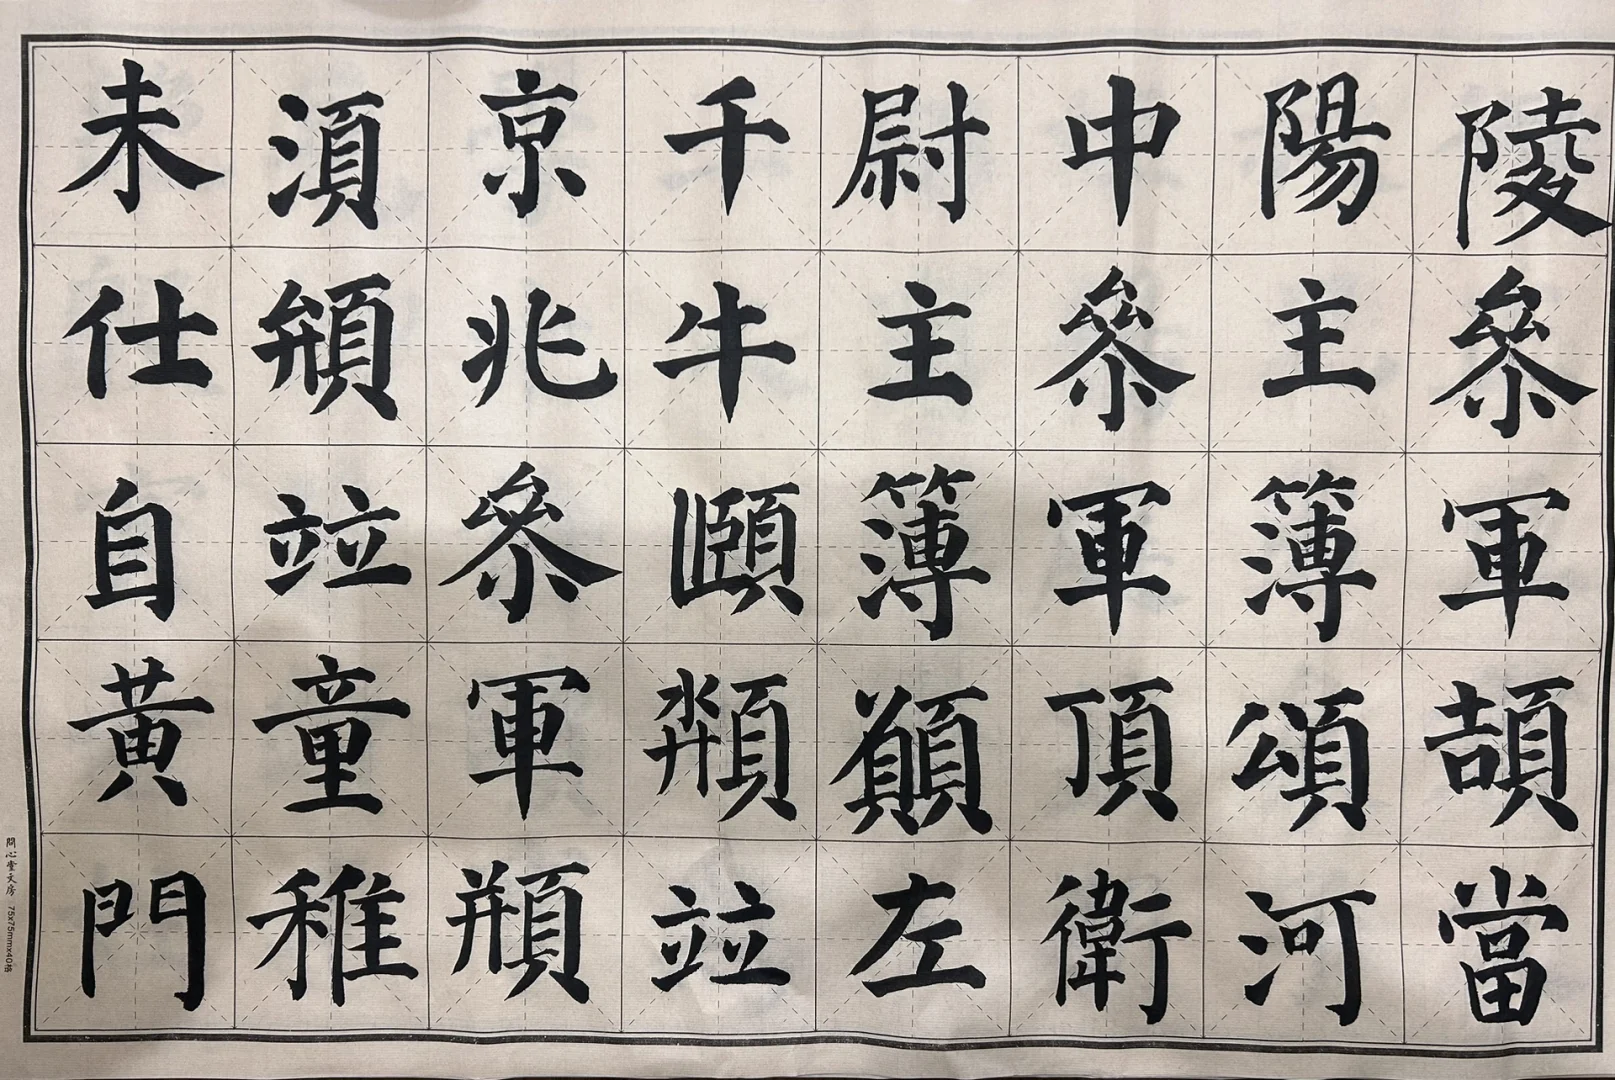 陵參軍頡當
陽主簿頌河
中參軍頂衛
尉主簿願左
千牛頤竝
京兆參軍頩
湏竝童稚
未仕自黃門
問心堂文房 75x75mmx40格